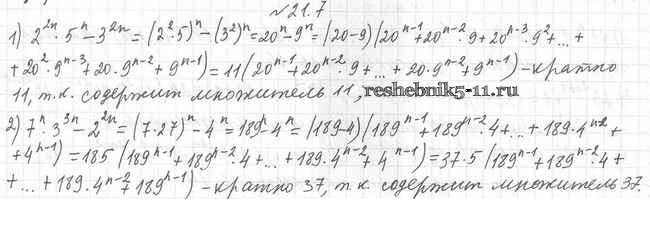 №21.7
1) 2²ⁿ · 5ⁿ - 3²ⁿ = (2² · 5)ⁿ - (3²)ⁿ = 20ⁿ - 9ⁿ = (20-9)(20ⁿ⁻¹ + 20ⁿ⁻² · 9 + 20ⁿ⁻³ · 9² + ... +
+ 20² · 9ⁿ⁻³ + 20 · 9ⁿ⁻² + 9ⁿ⁻¹) = 11(20ⁿ⁻¹ + 20ⁿ⁻² · 9 + ... + 20 · 9ⁿ⁻² + 9ⁿ⁻¹) - кратно
11, т.к. содержит множитель 11,
reshebnik5-11.ru
2) 7ⁿ · 3³ⁿ - 2²ⁿ = (7 · 27)ⁿ - 4ⁿ = 189ⁿ - 4ⁿ = (189-4)(189ⁿ⁻¹ + 189ⁿ⁻² · 4 + ... + 189 · 4ⁿ⁻² +
+ 4ⁿ⁻¹) = 185(189ⁿ⁻¹ + 189ⁿ⁻² · 4 + ... + 189 · 4ⁿ⁻² + 4ⁿ⁻¹) = 37 · 5(189ⁿ⁻¹ + 189ⁿ⁻² · 4 +
+ ... + 189 · 4ⁿ⁻² + 189ⁿ⁻¹) - кратно 37, т.к. содержит множитель 37.